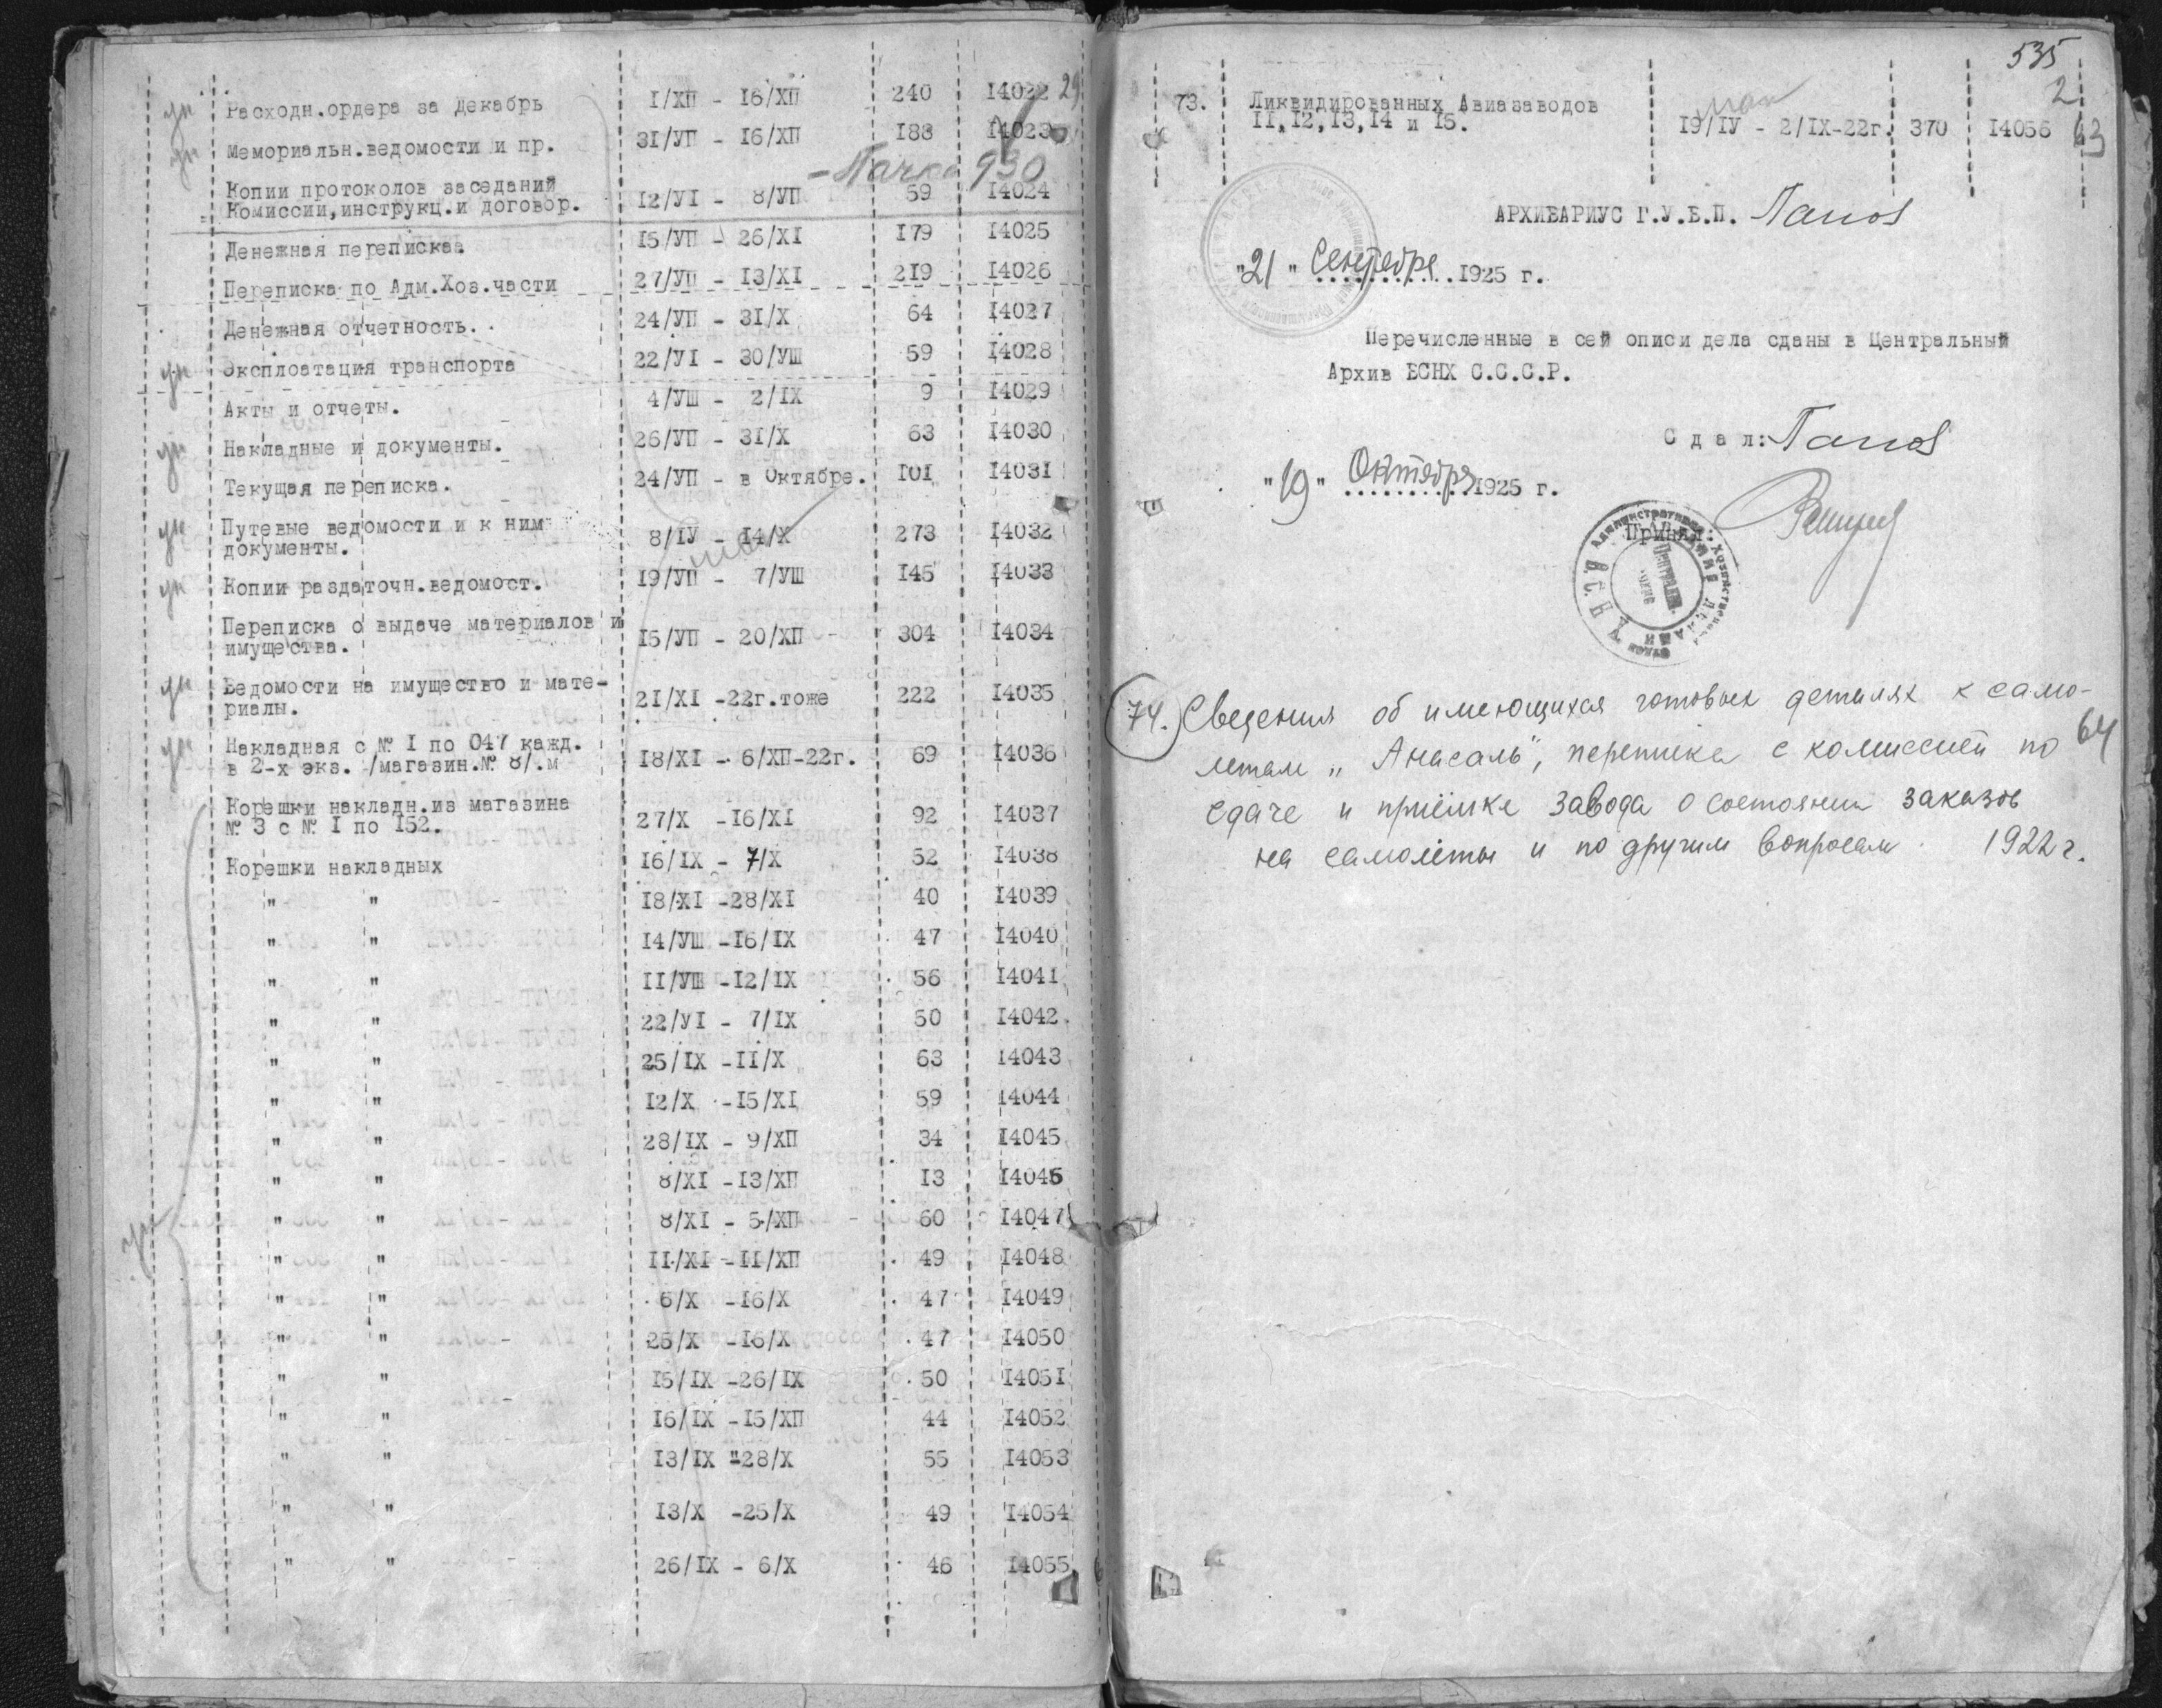 ун Расходн.ордера за Декабрь I/ХП - I6/ХП 240 I4022 29
ун Мемориальн.ведомости и пр. 3I/УП - I6/ХП I88 I4023
- Пачка 930
Копии протоколов заседаний
Комиссии,инструкц.и договор. I2/УI - 8/УП 59 I4024
Денежная переписка. I5/УП - 26/XI I79 I4025
Переписка по Адм.Хоз.части 27/УП - I3/XI 219 I4026
Денежная отчетность. 24/УП - 3I/X 64 I4027
ун Эксплоатация транспорта 22/УI - 30/УШ 59 I4028
Акты и отчеты. 4/УШ - 2/IX 9 I4029
ун Накладные и документы. 26/УП - 3I/X 63 I4030
Текущая переписка. 24/УП - в Октябре. I0I I403I
ун Путевые ведомости и к ним
документы. 8/IУ - I4/X 273 I4032
ун Копии раздаточн.ведомост. I9/УП - 7/УШ I45 I4033
Переписка о выдаче материалов и
имущества. I5/УП - 20/ХП - 304 I4034
ун Ведомости на имущество и мате-
риалы. 2I/XI -22г.тоже 222 I4035
ун Накладная с № I по 047 кажд.
в 2-х экз. /магазин.№ 8/.м I8/XI - 6/ХП-22г. 69 I4036
Корешки накладн.из магазина
№ 3 с № I по I52. 27/X -I6/XI 92 I4037
Корешки накладных I6/IX - 7/X 52 I4038
" " I8/XI -28/XI 40 I4039
" " I4/УШ -I6/IX 47 I4040
" " II/УШ -I2/IX 56 I404I
" " 22/УI - 7/IX 50 I4042
" " 25/IX -II/X 63 I4043
" " I2/X -I5/XI 59 I4044
" " 28/IX - 9/ХП 34 I4045
" " 8/XI -I3/ХП I3 I4046
ун " " 8/XI - 5/ХП 60 I4047
" " II/XI -II/ХП 49 I4048
" " 6/X -I6/X 47 I4049
" " 25/X -I6/X 47 I4050
" " I5/IX -26/IX 50 I405I
" " I6/IX -I5/ХП 44 I4052
" " I3/IX -28/X 55 I4053
" " I3/X -25/X 49 I4054
" " 26/IX - 6/X 46 I4055
535
2
73. Ликвидированных Авиазаводов
II,I2,I3,I4 и I5. I9/IУ - 2/IX-22г. 370 I4056 63
АРХИВАРИУС Г.У.В.П. Панов
"21" Сентября 1925 г.
Перечисленные в сей описи дела сданы в Центральный
Архив ВСНХ С.С.С.Р.
С д а л: Панов
"19" Октября 1925 г.
Принял:
74. Сведения об имеющихся готовых деталях к само-
летам „Анасаль", переписка с комиссией по 64
сдаче и приёмке завода о состоянии заказов
на самолёты и по другим вопросам 1922 г.